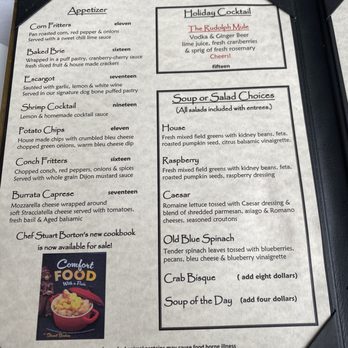 Appetizer
Corn Fritters eleven
Pan roasted corn, red pepper & onions
Served with a sweet chili lime sauce
Baked Brie sixteen
Wrapped in a puff pastry, cranberry-cherry sauce
fresh sliced fruit & house made crackers
Escargot seventeen
Sautéed with garlic, lemon & white wine
Served in our signature dog bone puffed pastry
Shrimp Cocktail nineteen
Lemon & homemade cocktail sauce
Potato Chips eleven
House made chips with crumbled bleu cheese
chopped green onions, warm bleu cheese dip
Conch Fritters sixteen
Chopped conch, red peppers, onions & spices
Served with whole grain Dijon mustard sauce
Burrata Caprese seventeen
Mozzarella cheese wrapped around
soft Stracciatella cheese served with tomatoes,
fresh basil & Aged balsamic
Chef Stuart Borton's new cookbook
is now available for sale!
Comfort
FOOD
With a Flair
Stuart Borton
Holiday Cocktail
The Rudolph Mule
Vodka & Ginger Beer
lime juice, fresh cranberries
& sprig of fresh rosemary
Cheers!
fifteen
Soup or Salad Choices
(All salads included with entrees.)
House
Fresh mixed field greens with kidney beans, feta,
roasted pumpkin seed, citrus balsamic vinaigrette.
Raspberry
Fresh mixed field greens with kidney beans, feta,
roasted pumpkin seeds, raspberry dressing
Caesar
Romaine lettuce tossed with Caesar dressing &
blend of shredded parmesan, asiago & Romano
cheeses, seasoned croutons
Old Blue Spinach
Tender spinach leaves tossed with blueberries,
pecans, bleu cheese & blueberry vinaigrette
Crab Bisque ( add eight dollars)
Soup of the Day (add four dollars)
may cause food borne illness